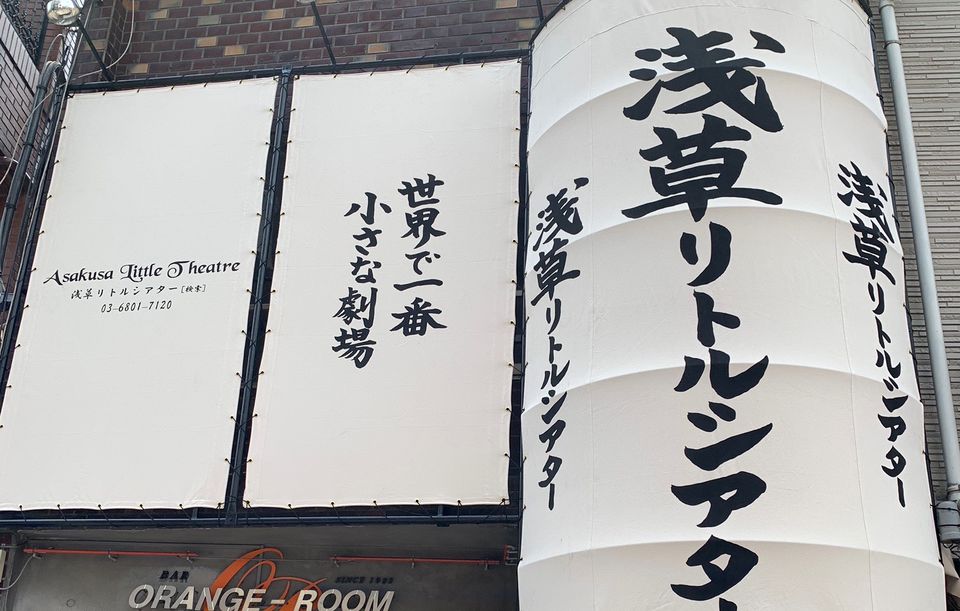 Asakusa Little Theatre
浅草リトルシアター[検索]
03-6801-7120
世界で一番
小さな劇場
浅草リトルシアター
浅草リトルシアタ
浅草リトルシアター
BAR
SINCE 1992
ORANGE-ROOM